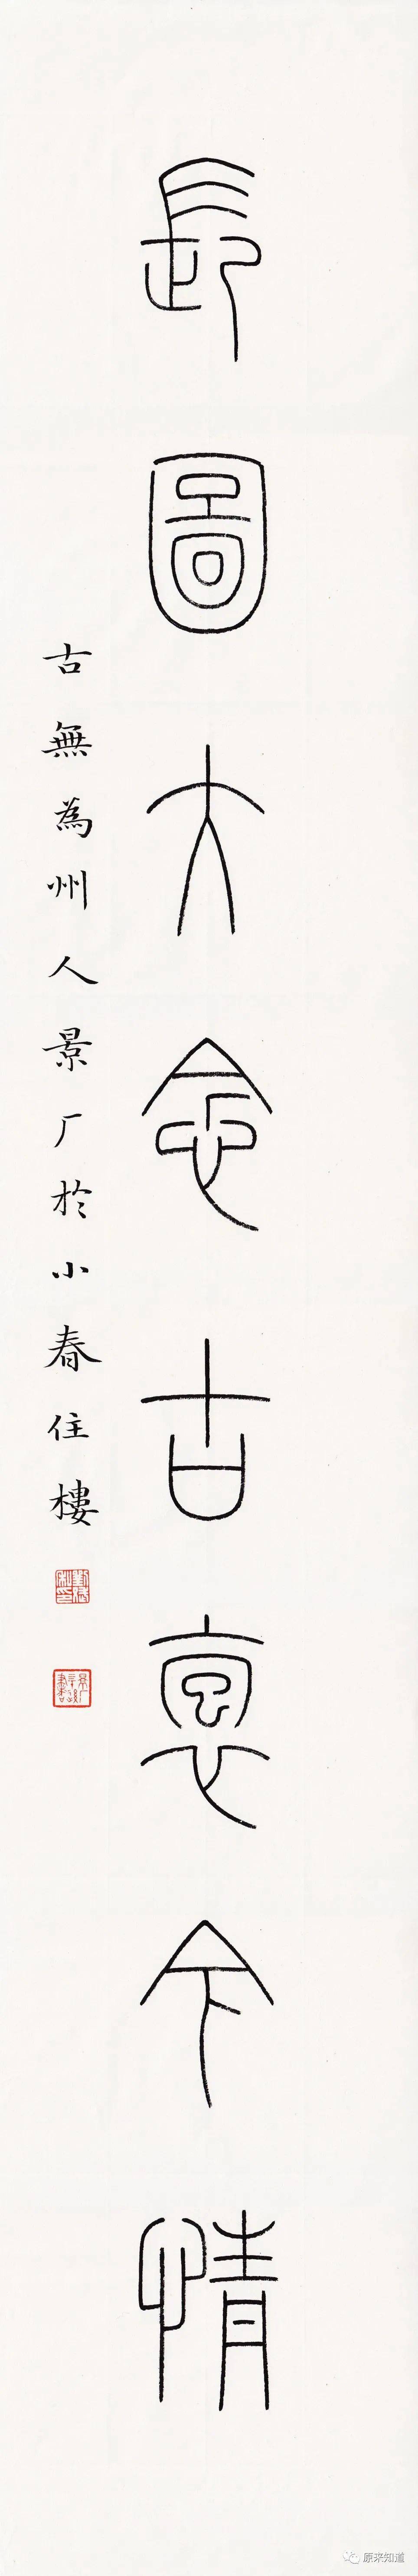 長圖大念古今情
古無為州人景厂於小春住樓
原来知道